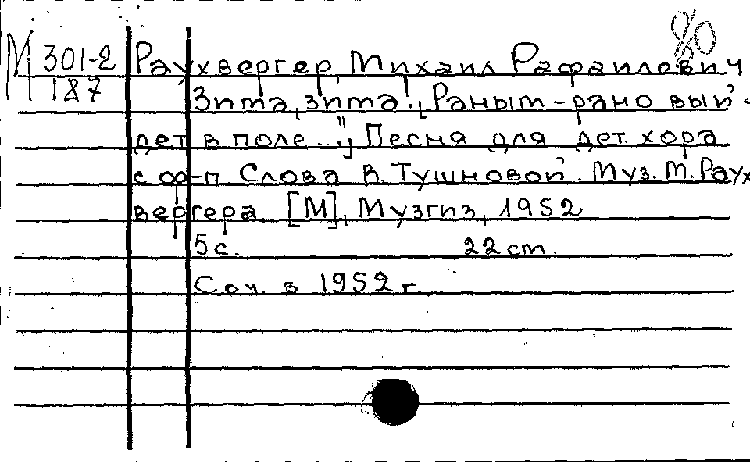 80
М 301-2
187
Раухвергер, Михаил Рафаилович
Зита, зита! „Раным-рано вый-
дет в поле..."; Песня для дет. хора
с ф-п. Слова В. Тушновой. Муз. М. Раух
вергера. [М], Музгиз, 1952
5 с. 22 cm.
Соч. в 1952 г.